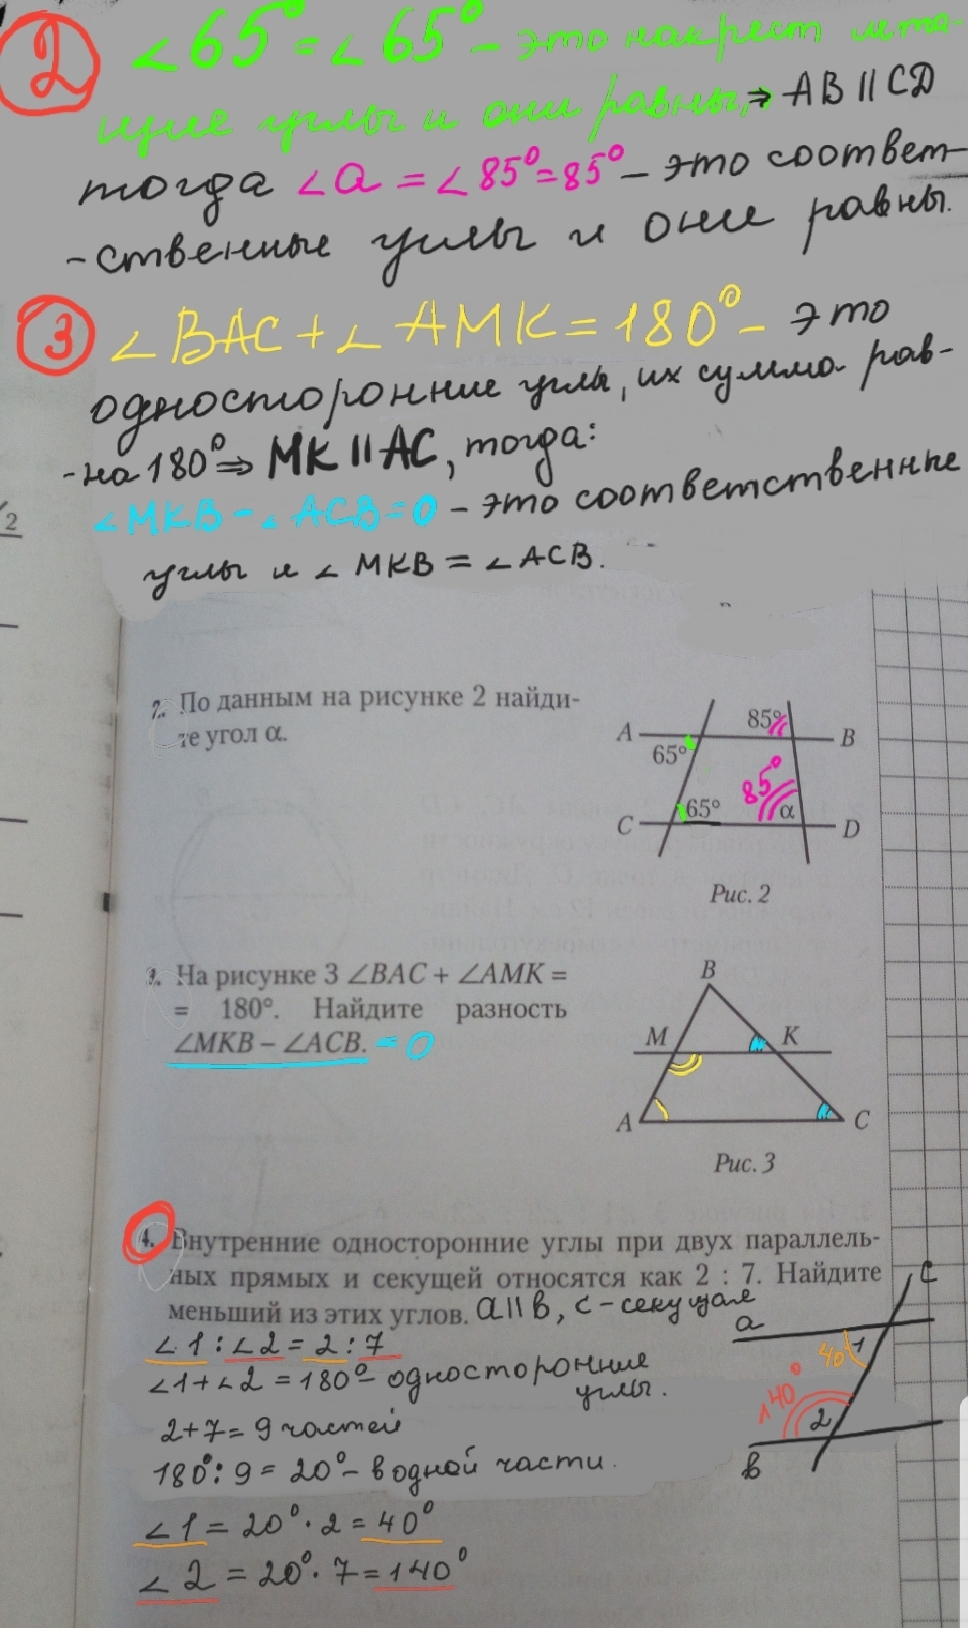 2 ∠65° = ∠65° – это накрест лежа-
щие углы и они равны, ⇒ AB || CD
тогда ∠a = ∠85° = 85° – это соответ-
-ственные углы и они равны.
3 ∠BAC + ∠AMK = 180° – это
односторонние углы, их сумма рав-
-на 180° ⇒ MK || AC, тогда:
∠MKB – ∠ACB = 0 – это соответственные
углы и ∠MKB = ∠ACB.
2
2. По данным на рисунке 2 найди-
те угол α.
A 65° 85° B
85°
C 65° α D
Рис. 2
3. На рисунке 3 ∠BAC + ∠AMK =
= 180°. Найдите разность
∠MKB – ∠ACB. = 0
B
M K
A C
Рис. 3
4. Внутренние односторонние углы при двух параллель-
ных прямых и секущей относятся как 2 : 7. Найдите
меньший из этих углов. a || b, c – секущая
∠1 : ∠2 = 2 : 7
∠1 + ∠2 = 180° – односторонние
углы.
2 + 7 = 9 частей
180° : 9 = 20° – в одной части.
∠1 = 20° · 2 = 40°
∠2 = 20° · 7 = 140°
c
a
40° 1
140°
2
b